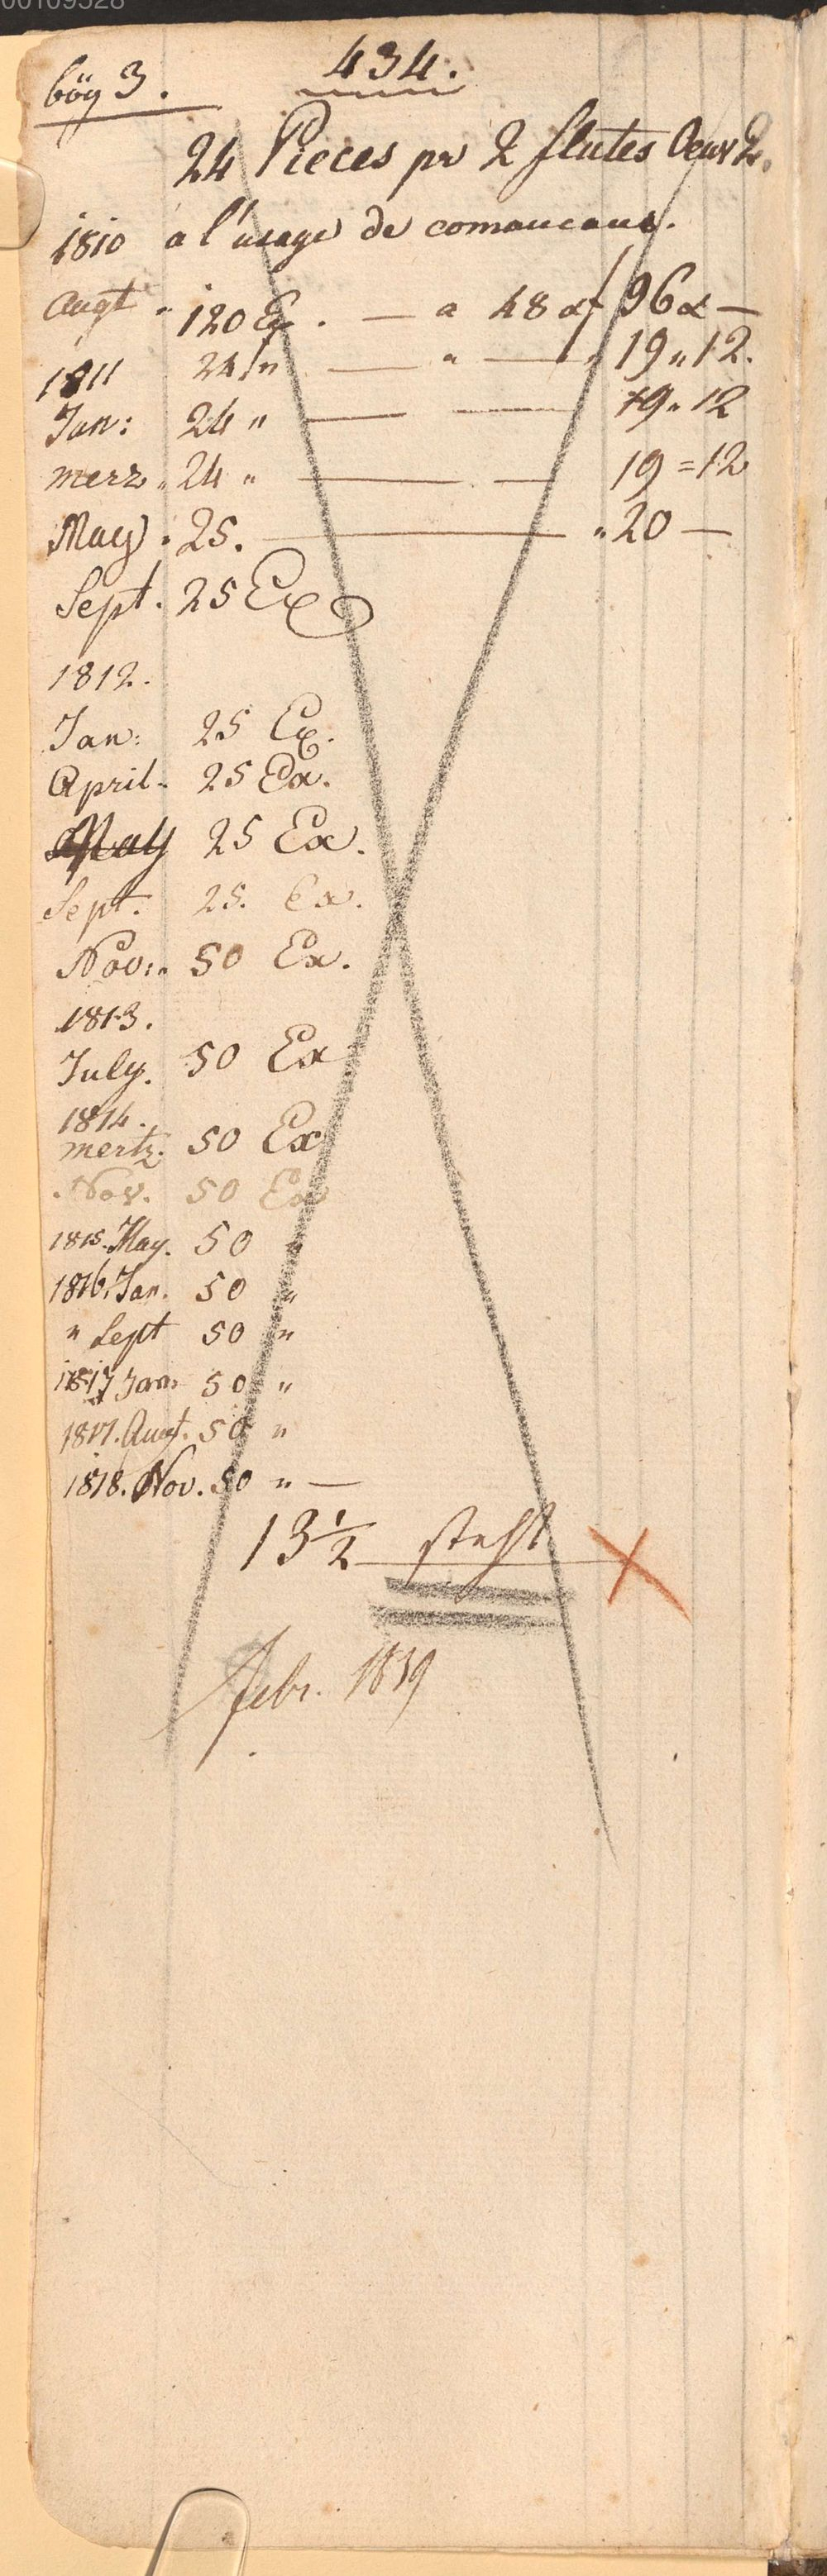 00109528
434.
böy 3.
24 Pieces pr 2 flutes Oeuv 2.
1810 a l'usage de comancans.
Augt " 120 Ex. — a 48 x f 96 x —
1811 24 " — " — " 19 " 12.
Jan: 24 " — — 19 " 12
merz " 24 " — — 19 = 12
May " 25. — " 20 —
Sept. 25 Ex
1812.
Jan: 25 Ex.
April " 25 Ex.
May 25 Ex.
Sept. 25. Ex.
Nov: " 50 Ex.
1813.
July. 50 Ex
1814.
mertz. 50 Ex
Nov. 50 Ex
1815. May. 50 "
1816. Jan. 50 "
" Sept 50 "
1817 Jan: 50 "
1817. Augt. 50 "
1818. Nov. 50 " —
13 1/2 — steht
Febr. 1839